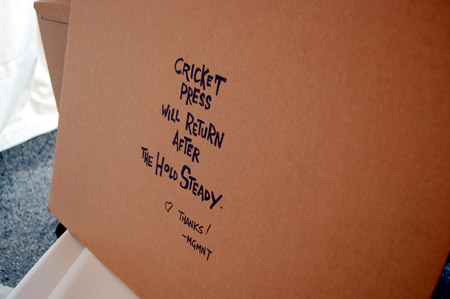 CRICKET
PRESS
WILL RETURN
AFTER
THE HOLD STEADY.
♡ THANKS!
-MGMNT